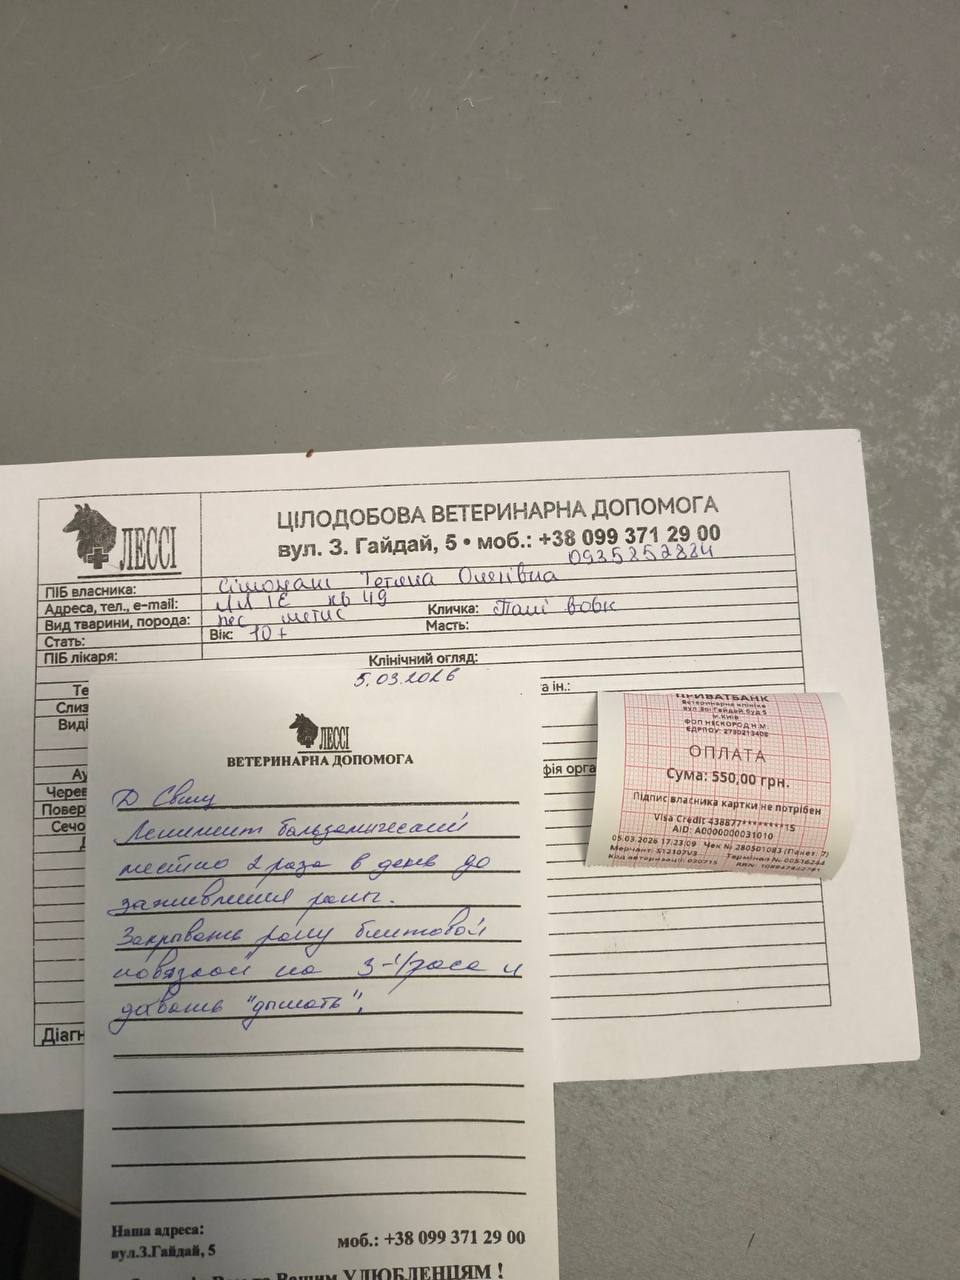 ЛЕССІ
ЦІЛОДОБОВА ВЕТЕРИНАРНА ДОПОМОГА
вул. З. Гайдай, 5 • моб.: +38 099 371 29 00
0935252884
ПІБ власника: Тетяна Олегівна
Адреса, тел., e-mail: кв 49
Вид тварини, порода: пес метис Кличка: Пані вовк
Стать: Вік: 10+ Масть:
ПІБ лікаря: Клінічний огляд:
5.03.2026
Те
та ін.:
Слиз
Виді
Ау
фія орга
Черев
Повер
Сечо
Діагн
ЛЕССІ
ВЕТЕРИНАРНА ДОПОМОГА
Линимент бальзамический
местно 2 раза в день до
заживления раны.
Закрывать рану бинтовой
повязкой на 3-4 часа и
давать "дышать".
Наша адреса:
вул.З.Гайдай, 5
моб.: +38 099 371 29 00
Вашим УЛЮБЛЕНЦЯМ !
ПРИВАТБАНК
Ветеринарна клініка
вул Зої Гайдай буд 5
м.Київ
ФОП НЕСКОРОД Н.М.
ЄДРПОУ: 2730213408
ОПЛАТА
Сума: 550,00 грн.
Підпис власника картки не потрібен
Visa Credit 438877*********15
AID: A0000000031010
05.03.2026 17:23:09 Чек № 280501083 (Пакет: 7)
Мерчант: S12107V3 Термінал № 00516244
Код авторизації: 020715 RRN: 108847822781